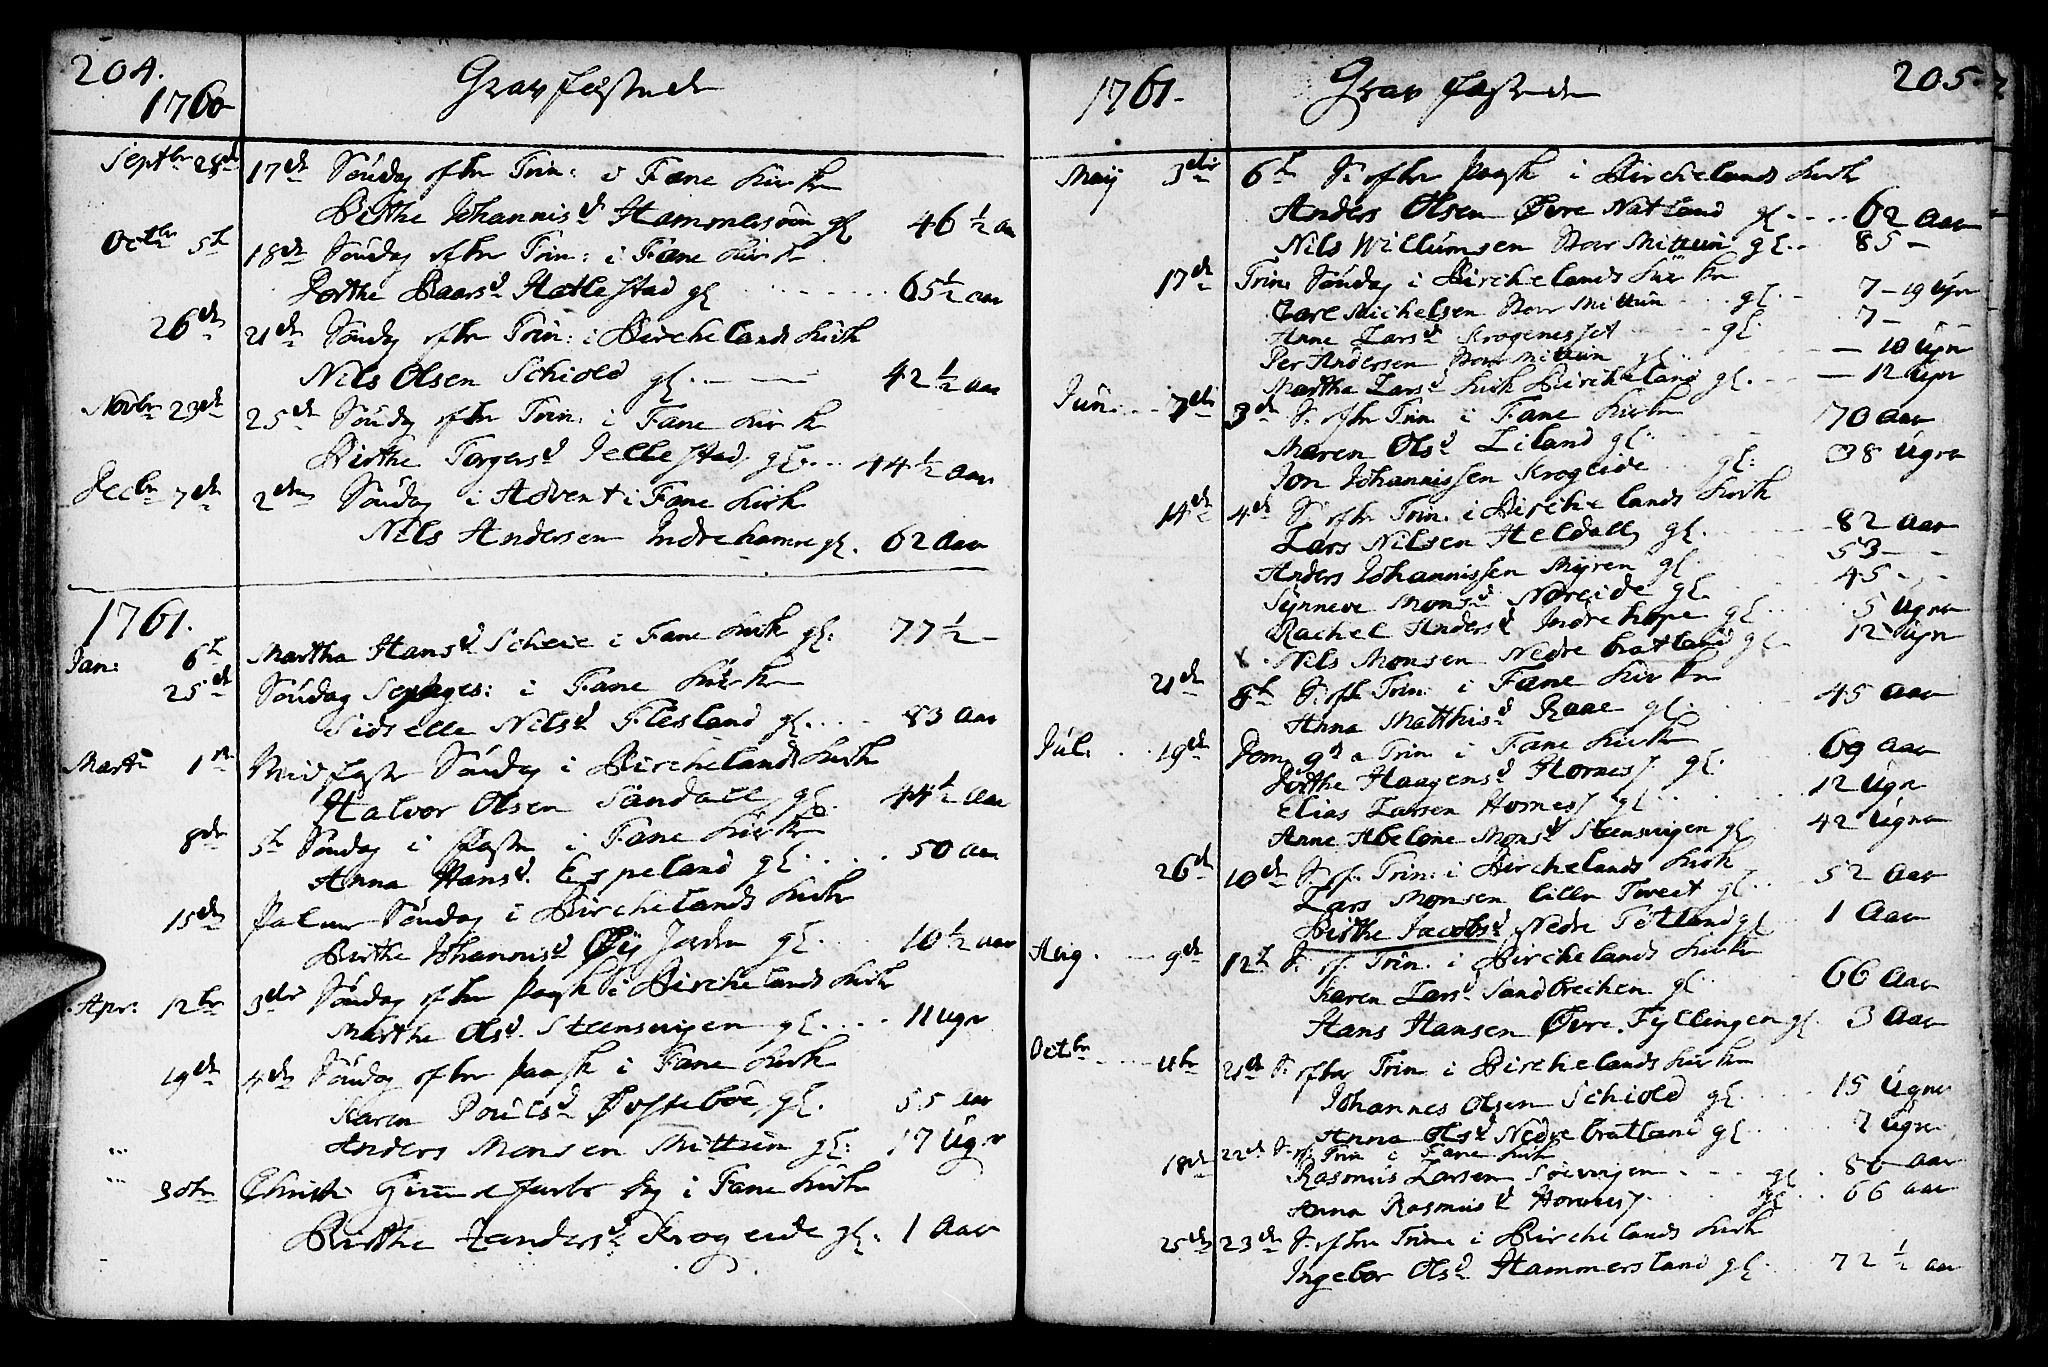 204.
1760
Grav fæstede
Septbr 28de 17de Søndag efter Trin: i Fane Kirke
Birthe Johannisd. Hammersøen gl 46 1/2 aar
Octbr 5te 18de Søndag efter Trin: i Fane Kirke
Dorthe Baarsd. Hatlestad gl 65 1/2 aar
26de 21de Søndag efter Trin: i Birchelands Kirke
Nils Olsen Schiold gl. 42 1/2 aar
Novbr 23de 25de Søndag efter Trin: i Fane Kirke
Birthe Torgersd. Jellestad gl. 44 1/2 Aar
Decbr 7de 2den Søndag i Advent i Fane Kirke
Nils Andersen Indrehamre gl. 62 Aar
1761.
Jan: 6te Martha Hansd. Scheie i Fane Kirke gl: 77 1/2 -
25de Søndag Septuages: i Fane Kirke
Sidselle Nilsd. Flesland gl. 83 Aar
Marti 1ste Midfaste Søndag i Birchelands Kirke
Halvor Olsen Sandall gl. 44 1/2 Aar
8de 5te Søndag i Faste i Fane Kirke
Anna Hansd. Espeland gl. 50 aar
15de Palme Søndag i Birchelands Kirke
Birthe Johannisd. Øy Jorden gl. 10 1/2 aar
Apr: 12te 3die Søndag efter Paaske i Birchelands Kirke
Marthe Olsd. Steensvigen gl. 11 ugr
19de 4de Søndag efter Paaske i Fane Kirke
Karen Poulsd. Øvstebøe gl. 55 Aar
Anders Monsen Mittun gl: 17 Ugr
30te Christi Himmelfarts dag i Fane Kirke
Birthe Zandersd. Krogeide gl: 1 Aar
1761.
Grav fæstede
205.
Maij 3die 6te S: efter Paask i Birchelands Kirk
Anders Olsen Øvre Natland gl. 62 Aar
Nils Willumsen Stor Mittun gl. 85 -
17de Trin: Søndag i Birchelands Kirke
Carl Michelsen Stor Mittun gl. 7 - 19 Ugr
Anne Larsd. Krogenesset gl. 7 -
Per Andersen Stor Mittun gl. - 10 Ugr
Marthe Larsd. Kirk Bircheland gl. - 12 Ugr
Jun: 7de 3de S: efter Trin: i Fane Kirke
Maren Olsd. Liland gl. 70 Aar
Jon Johannissen Krogeide gl: 38 Ugra
14de 4de S: efter Trin: i Birchelands Kirk
Lars Nilsen Heldall gl. 82 Aar
Anders Johannissen Myren gl. 53 -
Synneve Monsd. Nøreide gl. 45 -
Rachel Andersd. Indrehope gl. 5 Ugra
x. Nils Monsen Nedre bratland gl. 12 Ugr
21de 8te S: efter Trin: i Fane Kirke
Anna Matthisd. Raae gl. 45 Aar
Jul: 19de Dom. 9de a Trin: i Fane Kirke
Dorthe Haagensd. Hornes gl. 69 Aar
Elias Larsen Hornes gl. 12 Ugr
Anne Abelone Monsd. Steensvigen gl. 42 Ugra
26de 10de S. ef. Trin: i Birchelands Kirk
Lars Monsen lille Tveet gl. 52 Aar
Birthe Jacobsd. Nedre Titland gl. 1 Aar
Aug. 9de 12te S: ef. Trin: i Birchelands Kirke
Karen Larsd. Sandbrechen gl. 66 Aar
Hans Hansen Øvre Fyllingen gl. 3 Aar
Octbr 11te 21de S: efter Trin i Birchelands Kirke
Johannes Olsen Schiold gl. 15 Ugr
Anna Olsd. Nedre bratland gl. 7 Ugr
18de 22de S. ef. Trin i Fane Kirk
Rasmus Larsen Søevigen gl. 80 Aar
Anna Rasmusd. Hornes gl. 66 aar
25de 23de S. efter Trin: i Birchelands Kirk
Ingebor Olsd. Hammersland gl. 72 1/2 aar